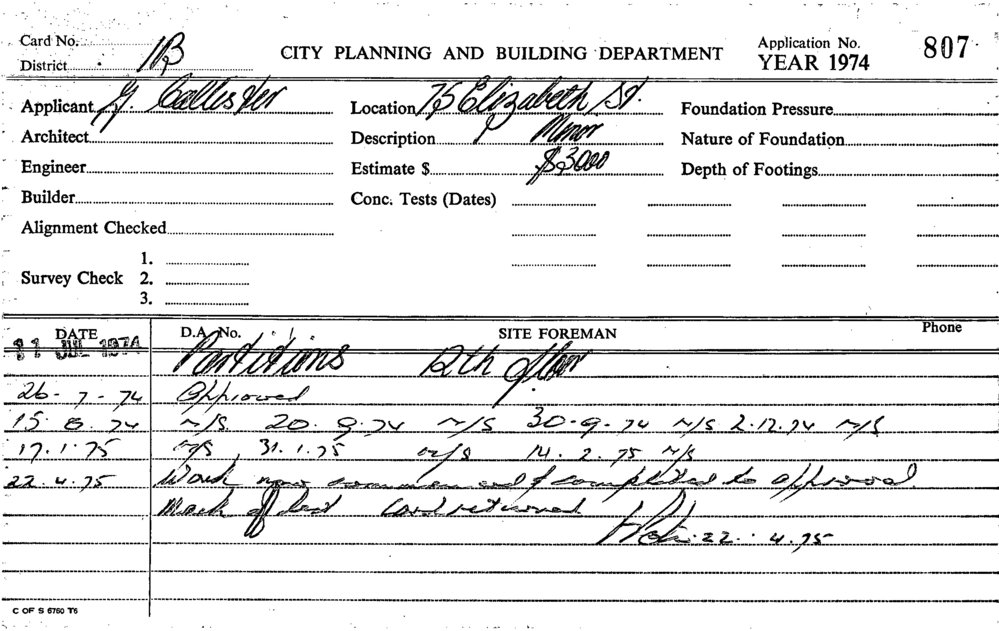 Card No.
District 1B
CITY PLANNING AND BUILDING DEPARTMENT
Application No. 807
YEAR 1974
Applicant G. Callister
Location 75 Elizabeth St.
Foundation Pressure
Architect
Description Minor
Nature of Foundation
Engineer
Estimate $ $3000
Depth of Footings
Builder
Conc. Tests (Dates)
Alignment Checked
Survey Check
1.
2.
3.
DATE D.A. No. SITE FOREMAN Phone
11 JUL 1974 Partitions 12th floor
26-7-74 Approved
15.8.74 N/S 20.9.74 N/S 30-9-74 N/S 2.12.74 N/S
17.1.75 N/S 31.1.75 N/S 14.2.75 N/S
22.4.75 Work now commenced & completed to approval.
Mark off list Card returned
22.4.75
C OF S 6760 T6